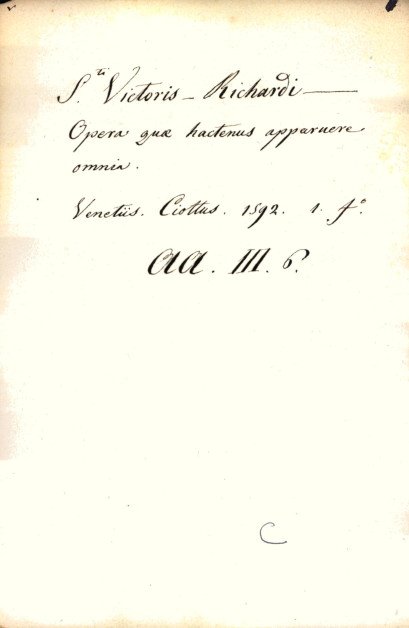 S.ti Victoris - Richardi —
Opera quæ hactenus apparuere
omnia.
Venetiis. Ciottus. 1592. 1. f.o
aa. III. 6.
C